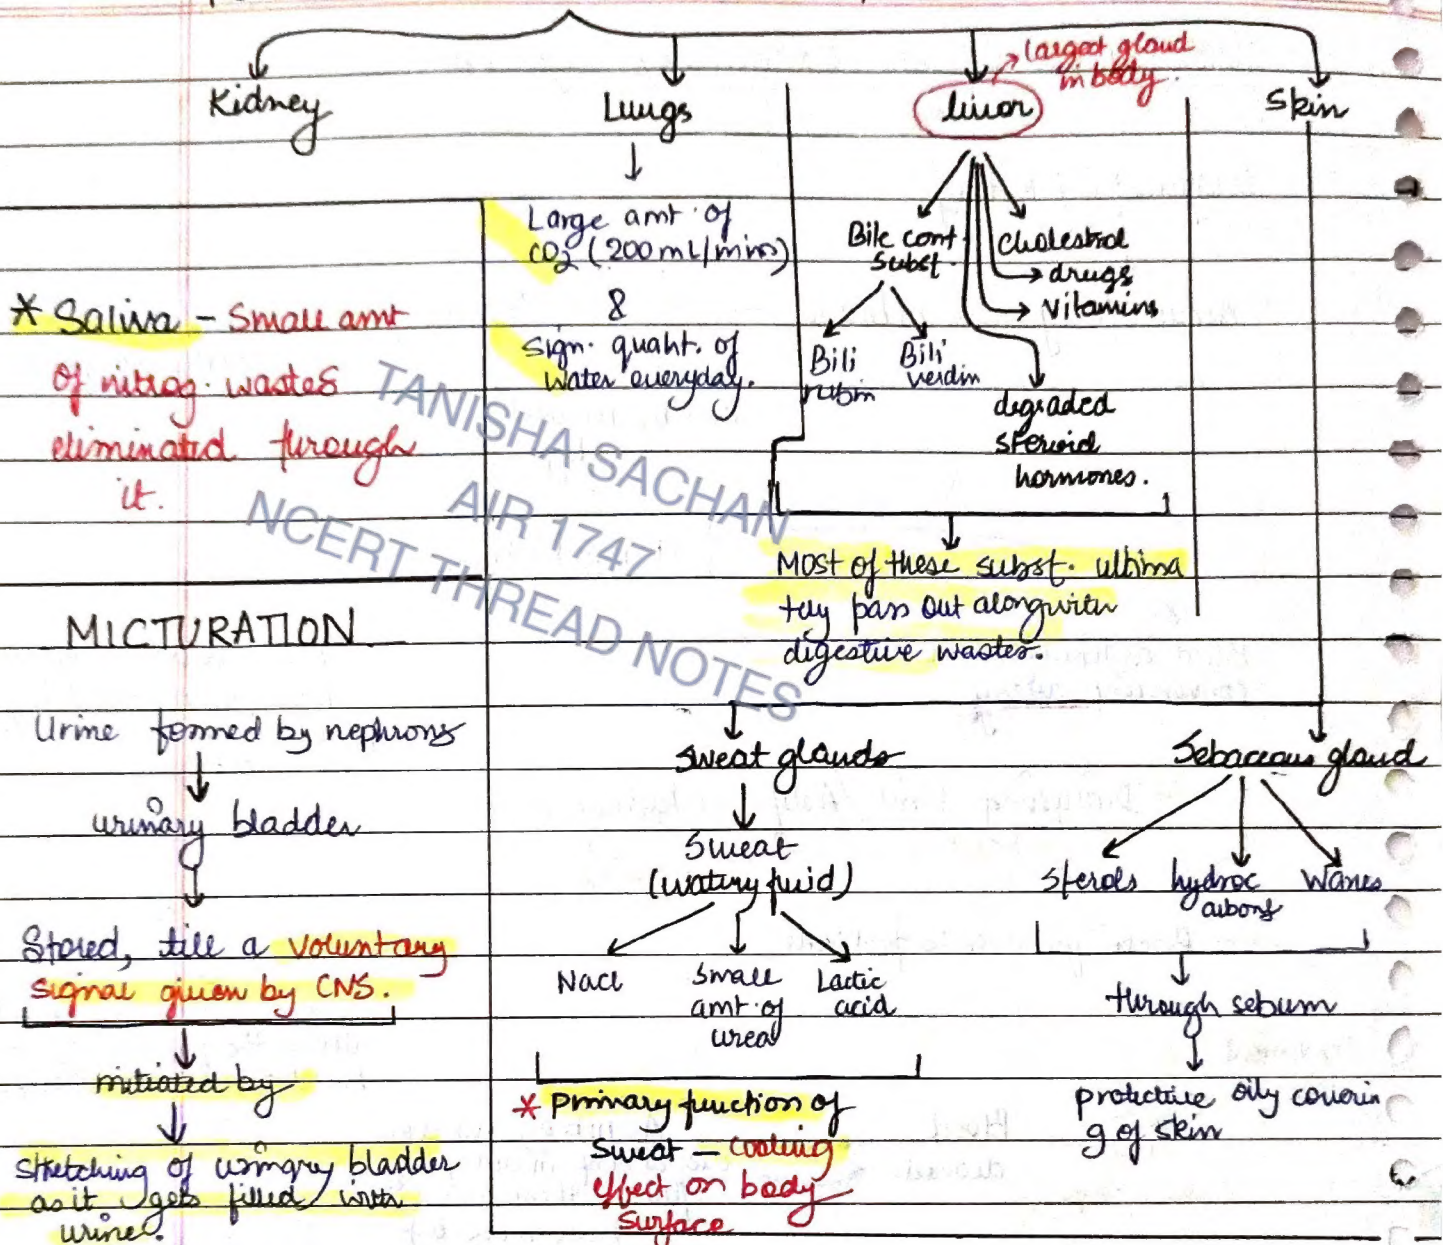 Kidney
Lungs
liver
largest gland
in body.
Skin
Large amt. of
CO2 (200mL/mins)
&
sign. quant. of
water everyday.
Bile cont.
Subst.
Bili
rubin
Bili
verdin
Cholestrol
drugs
Vitamins
degraded
steroid
hormones.
Most of these subst. ultima
tely pass out alongwith
digestive wastes.
* Saliva - Small amt
of nitrog. wastes
eliminated through
it.
TANISHA SACHAN
AIR 1747
NCERT THREAD NOTES
MICTURATION
Urine formed by nephrons
urinary bladder
Stored, till a voluntary
signal given by CNS.
initiated by
stretching of urinary bladder
as it gets filled with
urine.
Sweat glands
Sweat
(watery fluid)
NaCl
Small
amt. of
urea
Lactic
acid
* primary function of
sweat - cooling
effect on body
surface
Sebaceous gland
Sterols
hydroc
arbons
Waxes
through sebum
protective oily coverin
g of skin